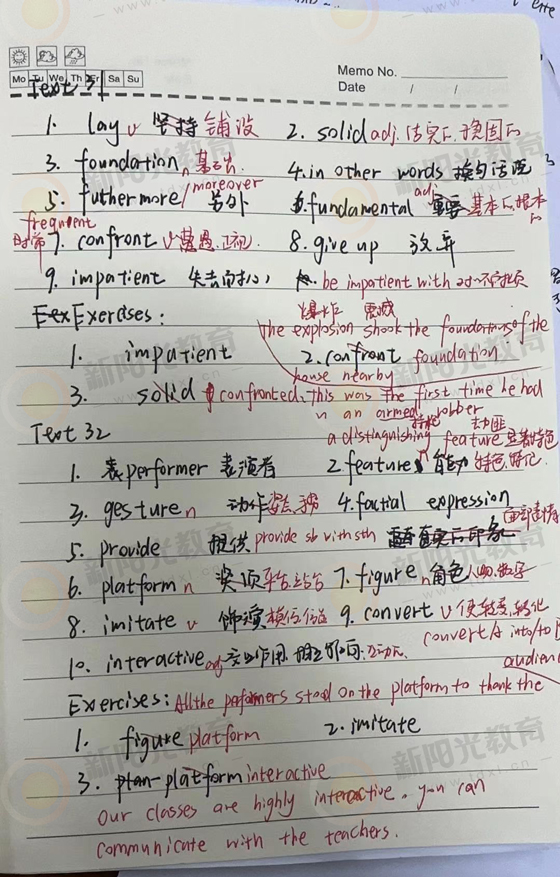 Memo No.
Mo Tu We Th Fr Sa Su
Date / /
Text 31
1. lay v 坚持 铺设 2. solid adj.
3. foundation n 基础 4. in other words 换句话说
5. futhermore/moreover 另外 fundamental adj 重要 基本的 根本
frequent
时常 7. confront v 正视 8. give up 放弃
9. impatient 失去耐心 be impatient with 对~不耐烦
Exercises:
爆炸 震撼
The explosion shook the foundations of the
1. impatient 2. confront foundation
house nearby
3. solid confronted, this was the first time he had
an armed robber
a distinguishing feature 显著特色
Text 32
1. performer 表演者 2. feature n 能力 特色 特记
3. gesture n 动作 姿态 4. factial expression
5. provide 提供 provide sb with sth
6. platform n 奖项 平台 站台 7. figure n 角色 人物 数字
8. imitate v 饰演 模仿 9. convert v 使转变 转化
convert A into/to
10. interactive adj 交互作用 相互影响 互动的
audien
Exercises: All the performers stood on the platform to thank the
1. figure platform 2. imitate
3. platform interactive
Our classes are highly interactive. you can
communicate with the teachers.
新阳光教育